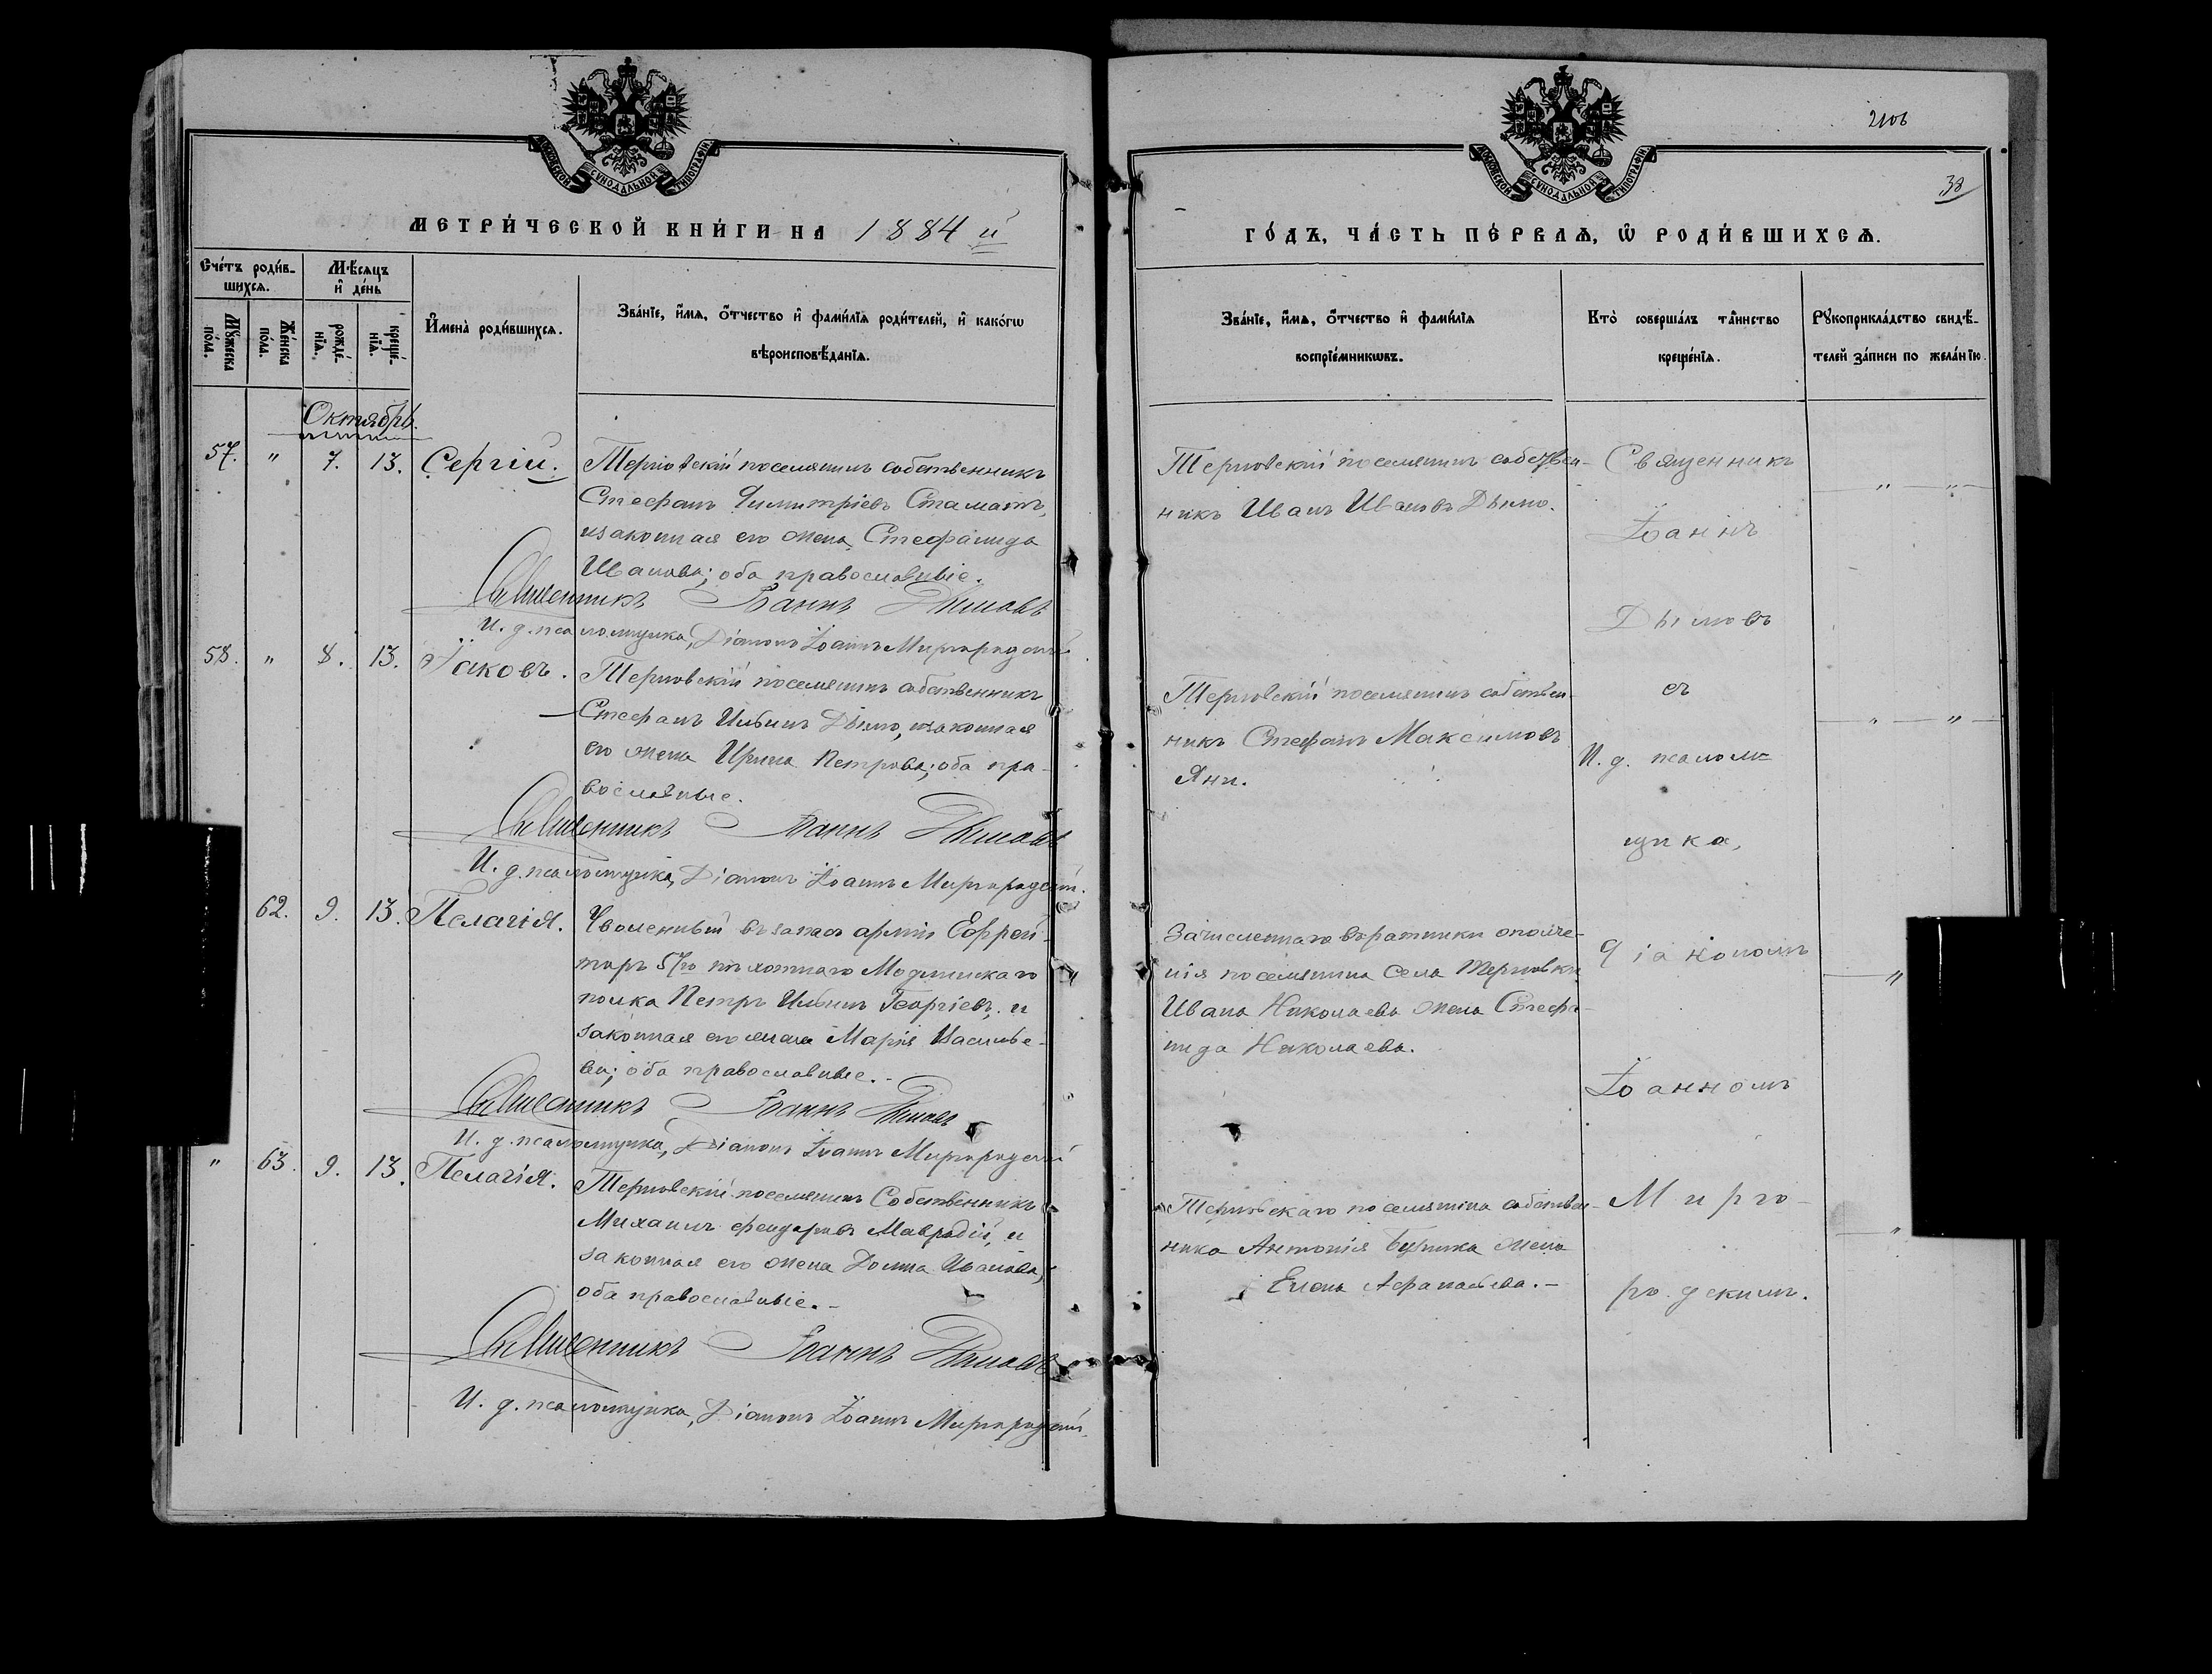 МОСКОВСКОЙ СѴНОДАЛЬНОЙ ТИПОГРАФІИ.
МЕТРИ́ЧЕСКОЙ КНИ́ГИ НА 1884 й
Сче́тъ роди́в-
шихсѧ.
Мѣ́сѧцъ
и҆ де́нь
Мꙋ́жеска
по́ла.
Же́нска
по́ла.
рожде́-
нїѧ.
креще́-
нїѧ.
И҆мена̀ роди́вшихсѧ.
Зва́нїе, и҆́мѧ, ѻ҆́тчество и҆ фами́лїѧ роди́телей, и҆ како́гѡ
вѣроисповѣ́данїѧ.
Октябрь.
57. " 7. 13. Сергій.
Терновскій поселянинъ собственникъ
Стефанъ Димитріевъ Стаматъ,
и законная его жена, Стефанида
Иванова; оба православные.
Священникъ Іоаннъ Дымовъ
И. д. псаломщика, Діаконъ Іоаннъ Миргородскій
58. " 8. 13. Іаковъ.
Терновскій поселянинъ собственникъ
Стефанъ Ильинъ Дымо, и законная
его жена Ирина Петрова; оба пра-
вославные.
Священникъ Іоаннъ Дымовъ
И. д. псаломщика, Діаконъ Іоаннъ Миргородскій.
62. 9. 13. Пелагія.
Уволенный въ запасъ арміи Ефрей-
торъ 57го пѣхотнаго Модлинскаго
полка Петръ Ильинъ Георгіевъ, и
законная его жена Марія Василье-
ва; оба православные.-
Священникъ Іоаннъ Дымовъ
И. д. псаломщика, Діаконъ Іоаннъ Миргородскій
" 63. 9. 13. Пелагія.
Терновскій поселянинъ Собственникъ
Михаилъ Феодоровъ Мавродій, и
законная его жена Домна Иванова;
оба православные.-
Священникъ Іоаннъ Дымовъ
И. д. псаломщика, Діаконъ Іоаннъ Миргородскій.
38
МОСКОВСКОЙ СѴНОДАЛЬНОЙ ТИПОГРАФІИ.
ГО́ДЪ, ЧА́СТЬ ПЕ́РВАѦ, Ѡ҆ РОДИ́ВШИХСѦ.
Зва́нїе, и҆́мѧ, ѻ҆́тчество и҆ фами́лїѧ
воспрїе́мникѡвъ.
Кто̀ соверша́лъ та́инство
креще́нїѧ.
Рꙋкоприкла́дство свидѣ́-
телей за́писи по жела́нїю.
Терновскій поселянинъ собствен-
никъ Иванъ Ивановъ Дымо.
Терновскій поселянинъ собствен-
никъ Стефанъ Максимовъ
Яни.
Зачисленнаго въ ратники ополче-
нія поселянина села Терновки
Ивана Николаева жена Стефа-
нида Николаева.
Терновскаго поселянина собствен-
ника Антонія жена
Елена Афанасьева.-
Священникъ
Іоаннъ
Дымовъ
съ
И. д. псалом=
щика,
Діакономъ
Іоанномъ
Мирго-
родскимъ.